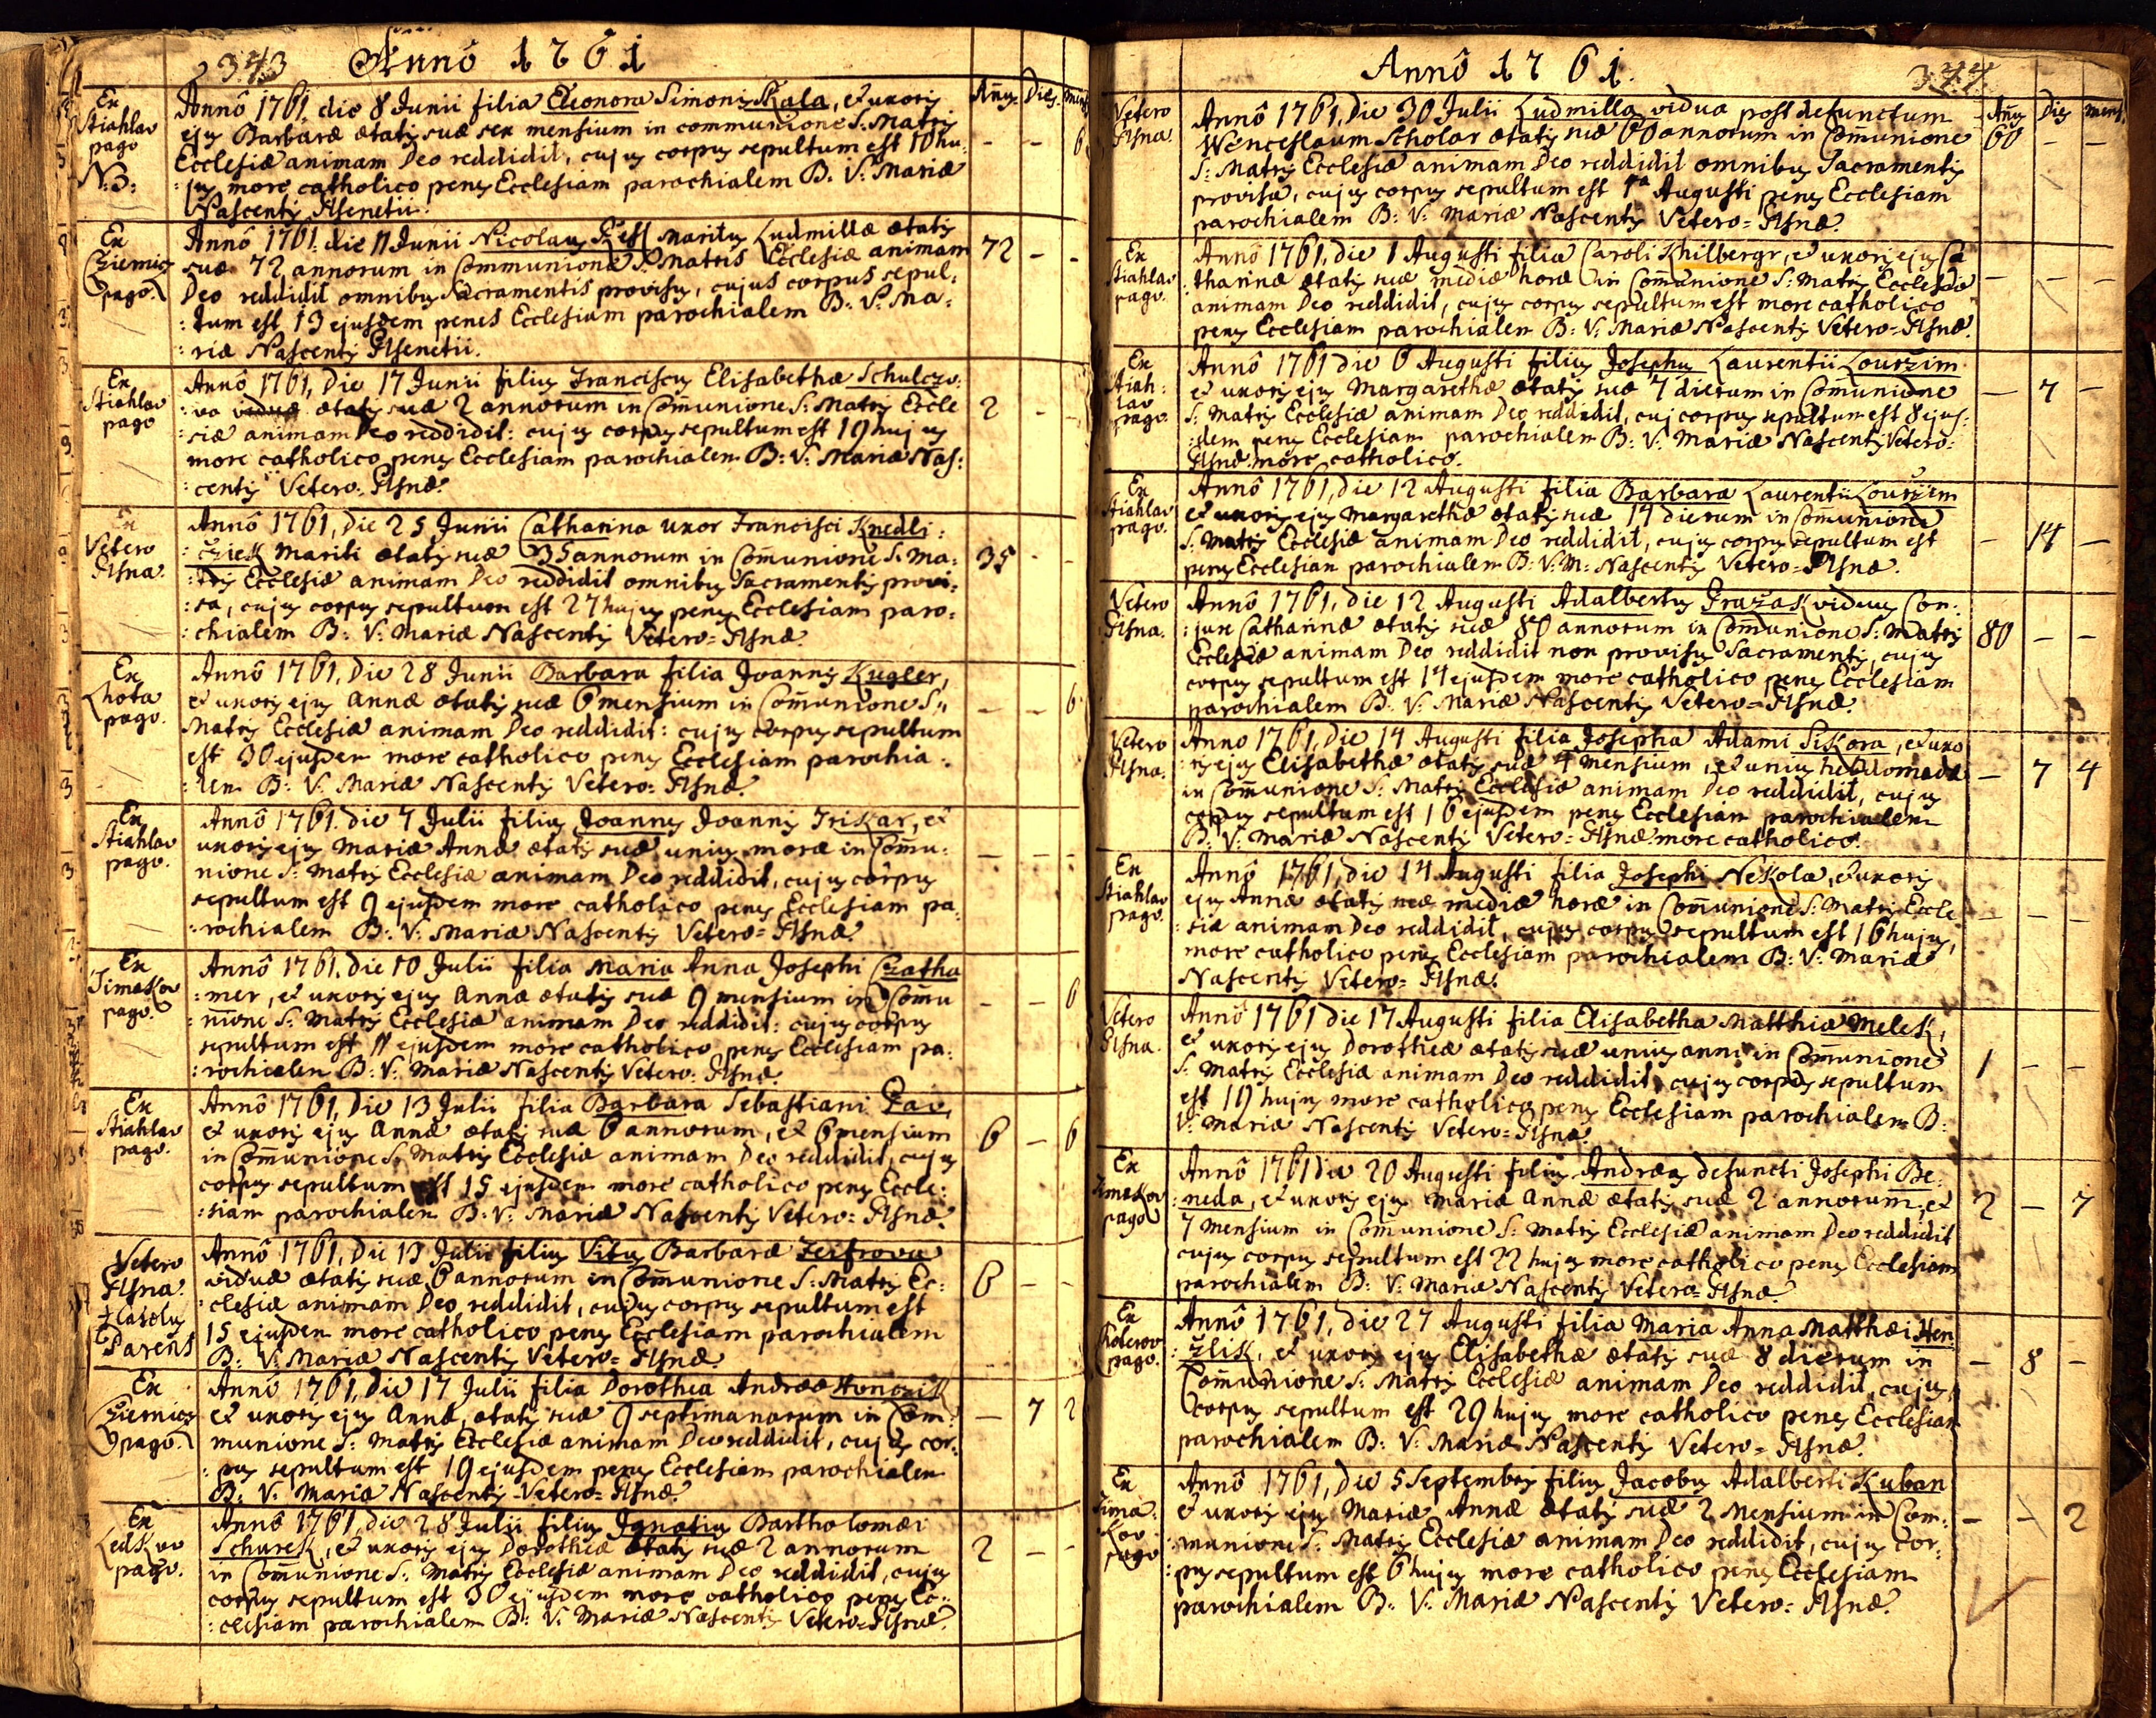 343 Annô 1761
Añy. Dies. mens
Ex Stiahlav pago N:3:
Annô 1761 die 8 Junii filia Eleonora Simonis Skala, et uxoris
ejus Barbaræ ætatis suæ sex mensium in communione S: Matris
Ecclesiæ animam Deo reddidit, cujus corpus sepultum est 10 hu:
:jus more catholico penes Ecclesiam parochialem B: V: Mariæ
Nascentis Plsenetii.
- - 6
Ex Cziemicz pago.
Annô 1761 die 11 Junii Nicolaus maritus Ludmillæ ætatis
suæ 72 annorum in Communione S: Matris Ecclesiæ animam
Deo reddidit omnibus Sacramentis provisus, cujus corpus sepul:
:tum est 13 ejusdem penes Ecclesiam parochialem B: V: Ma:
:riæ Nascentis Plsenetii.
72 - -
Ex Stiahlav pago
Annô 1761, die 17 Junii filius Franciscus Elisabethæ Schulczo:
va ætatis suæ 2 annorum in Com̃unione S: Matris Eccle
:siæ animam Deo reddidit: cujus corpus sepultum est 19 hujus
more catholico penes Ecclesiam parochialem B: V: Mariæ Nas:
:centis Vetero: Plsnæ.
2 - -
Ex Vetero Plsna.
Annô 1761, die 25 Junii Catharina uxor Francisci Knedli:
:cziek mariti ætatis suæ 35 annorum in Com̃unione S: Ma:
:tris Ecclesiæ animam Deo reddidit omnibus Sacramentis provi:
:sa, cujus corpus sepultum est 27 hujus penes Ecclesiam paro:
:chialem B: V: Mariæ Nascentis Vetero= Plsnæ.
35 - -
Ex Lhota pago.
Annô 1761, die 28 Junii Barbara filia Joannis Kugler,
et uxoris ejus Annæ ætatis suæ 6 mensium in Com̃unione S:
Matris Ecclesiæ animam Deo reddidit: cujus corpus sepultum
est 30 ejusdem more catholico penes Ecclesiam parochia:
:lem B: V: Mariæ Nascentis Vetero: Plsnæ.
- - 6
Ex Stiahlav pago.
Annô 1761. die 7 Julii filius Joannes Joannis Triskar, et
uxoris ejus Mariæ Annæ ætatis suæ unius moræ in Com̃u:
nione S: Matris Ecclesiæ animam Deo reddidit, cujus corpus
sepultum est 9 ejusdem more catholico penes Ecclesiam pa:
:rochialem B: V: Mariæ Nascentis Vetero= Plsnæ.
- - -
Ex Timakov pago.
Annô 1761. die 10 Julii filia Maria Anna Josephi Czatha
:mer, et uxoris ejus Annæ ætatis suæ 9 mensium in Com̃u
:nione S: Matris Ecclesiæ animam Deo reddidit: cujus corpus
sepultum est 11 ejusdem more catholico penes Ecclesiam pa:
:rochialem B: V: Mariæ Nascentis Vetero: Plsnæ.
- -
Ex Stiahlav pago.
Annô 1761, die 13 Julii filia Barbara Sebastiani
et uxoris ejus Annæ ætatis suæ 6 annorum, et 6 mensium
in Com̃unione S: Matris Ecclesiæ animam Deo reddidit, cujus
corpus sepultum est 15 ejusdem more catholico penes Eccle:
:siam parochialem B: V: Mariæ Nascentis Vetero: Plsnæ.
6 - 6
Vetero Plsna. † Carolus Parens
Annô 1761, die 13 Julii filius Vitus Barbaræ Zeifrova
viduæ ætatis suæ 6 annorum in Com̃unione S: Matris Ec:
:clesiæ animam Deo reddidit, cujus corpus sepultum est
15 ejusdem more catholico penes Ecclesiam parochialem
B: V: Mariæ Nascentis Vetero= Plsnæ.
6 - -
Ex Cziernicz pago.
Annô 1761, die 17 Julii filia Dorothea Andreæ Honczik
et uxoris ejus Annæ, ætatis suæ 9 septimanarum in Com:
munione S: Matris Ecclesiæ animam Deo reddidit, cujus cor:
:pus sepultum est 19 ejusdem penes Ecclesiam parochialem
B: V: Mariæ Nascentis Vetero= Plsnæ.
- 7 2
Ex Ledkov pago.
Annô 1761, die 28 Julii filius Ignatius Bartholomæi
Schurek, et uxoris ejus Dorotheæ ætatis suæ 2 annorum
in Com̃unione S: Matris Ecclesiæ animam Deo reddidit, cujus
corpus sepultum est 30 ejusdem more catholico penes Ec:
:clesiam parochialem B: V: Mariæ Nascentis Vetero=Plsnæ.
2 - -
Annô 1761. 344
Añy Dies mens.
Vetero Plsna.
Annô 1761, die 30 Julii Ludmilla vidua post defunctum
Wenceslaum Scholar ætatis suæ 60 annorum in Com̃unione
S: Matris Ecclesiæ animam Deo reddidit omnibus Sacramentis
provisa, cujus corpus sepultum est 1ª Augusti penes Ecclesiam
parochialem B: V: Mariæ Nascentis Vetero= Plsnæ.
60 - -
Ex Stiahlav pago.
Annô 1761, die 1 Augusti filia Caroli Khilbergr, et uxoris ejus Ca
:tharinæ ætatis suæ mediæ horæ in Com̃unione S: Matris Ecclesiæ
animam Deo reddidit, cujus corpus sepultum est more catholico
penes Ecclesiam parochialem B: V: Mariæ Nascentis Vetero=Plsnæ.
- - -
Ex Stiahlav pago.
Annô 1761 die 6 Augusti filius Josephus Laurentii Lourzim
et uxoris ejus Margarethæ ætatis suæ 7 dierum in Com̃unione
S: Matris Ecclesiæ animam Deo reddidit, cuj corpus sepultum est 8 ejus:
:dem penes Ecclesiam parochialem B: V: Mariæ Nascentis Vetero:
Plsnæ. more catholico.
- 7 -
Ex Stiahlav pago.
Annô 1761, die 12 Augusti filia Barbara Laurentii Lourzim
et uxoris ejus Margarethæ ætatis suæ 14 dierum in Com̃unione
S: Matris Ecclesiæ animam Deo reddidit, cujus corpus sepultum est
penes Ecclesiam parochialem B: V: M: Nascentis Vetero= Plsnæ.
- 14 -
Vetero Plsna.
Annô 1761, die 12 Augusti Adalbertus Prazak viduus Con:
:juge Catharinæ ætatis suæ 80 annorum in Com̃unione S: Matris
Ecclesiæ animam Deo reddidit non provisus Sacramentis, cujus
corpus sepultum est 14 ejusdem more catholico penes Ecclesiam
parochialem B: V: Mariæ Nascentis Vetero= Plsnæ.
80 - -
Vetero Plsna.
Anno 1761, die 14 Augusti filia Josepha Adami Sikora, et uxo
:ris ejus Elisabethæ ætatis suæ 4 mensium, et unius hebdomadæ
in Com̃unione S: Matris Ecclesiæ animam Deo reddidit, cujus
corpus sepultum est 16 ejusdem penes Ecclesiam parochialem
B: V: Mariæ Nascentis Vetero= Plsnæ. more catholico.
- 7 4
Ex Stiahlav pago.
Annô 1761, die 14 Augusti filia Josephi Nekola, et uxoris
ejus Annæ ætatis suæ mediæ horæ in Com̃unione S: Matris Eccle
:siæ animam Deo reddidit, cujus corpus sepultum est 16 hujus,
more catholico penes Ecclesiam parochialem B: V: Mariæ
Nascentis Vetero= Plsnæ.
- - -
Vetero Plsna.
Annô 1761 die 17 Augusti filia Elisabetha Matthiæ Melek,
et uxoris ejus Dorotheæ ætatis suæ unius anni in Com̃unione
S: Matris Ecclesiæ animam Deo reddidit, cujus corpus sepultum
est 19 hujus more catholico penes Ecclesiam parochialem B:
V: Mariæ Nascentis Vetero= Plsnæ.
1 - -
Ex Timakov pago
Annô 1761 die 20 Augusti filius Andreas defuncti Josephi Be:
:neda, et uxoris ejus Mariæ Annæ ætatis suæ 2 annorum, et
7 mensium in Com̃unione S: Matris Ecclesiæ animam Deo reddidit
cujus corpus sepultum est 22 hujus more catholico penes Ecclesiam
parochialem B: V: Mariæ Nascentis Vetero= Plsnæ.
2 - 7
Ex Koterov pago.
Annô 1761, die 27 Augusti filia Maria Anna Matthæi Hen:
:zlik, et uxoris ejus Elisabethæ ætatis suæ 8 dierum in
Com̃unione S: Matris Ecclesiæ animam Deo reddidit, cujus,
corpus sepultum est 29 hujus more catholico penes Ecclesiam
parochialem B: V: Mariæ Nascentis Vetero= Plsnæ.
- 8 -
Ex Tima: kov pago
Annô 1761, die 5 Septembris filius Jacobus Adalberti Kuban
et uxoris ejus Mariæ Annæ ætatis suæ 2 mensium in Com:
:munione S: Matris Ecclesiæ animam Deo reddidit, cujus cor:
:pus sepultum est 6 hujus more catholico penes Ecclesiam
parochialem B: V: Mariæ Nascentis Vetero: Plsnæ.
- - 2